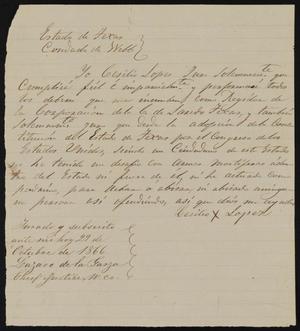 Estado de Texas
Condado de Webb
Yo Cecilio Lopez Juro Solemnemte que
Cumpliré fiél é imparcialmte y todos
los deberes que me incumben como Regidor de
la Corporación de la C. de Laredo Texas, y tambien
Solemnemte juro que desde la adopción de la Cons
titucion del Estado de Texas por el Congreso de los
Estados Unidos, siendo un Ciudadano de este Estado
no he tenido un desafio con armas mortiferas aden
tro del Estado ni fuera de él, ni he actuado como
padrino, para ni he ayudado á ninguna
persona así ofendiendo, así que Dios me ayude
Cecilio X Lopez
Jurado y subscrito
ante mi hoy 29 de
Octubre de 1866
Lázaro de la Garza
Chief Justice, W. Co.